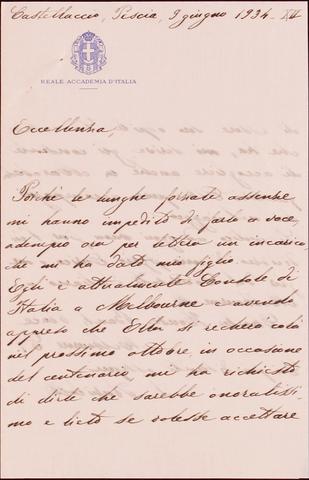 Castellaccio, Pescia, 9 giugno 1934-XII
REALE ACCADEMIA D'ITALIA
Eccellenza
Poichè le lunghe forzate assenze
mi hanno impedito di farlo a voce,
adempio ora per lettera un incarico
che mi ha dato mio figlio
Egli è attualmente Console di
Italia a Melbourne e avendo
appreso che Ella si recherà colà
nel prossimo ottobre, in occasione
del centenario mi ha richiesto
di dirle che sarebbe onoratissi-
mo e lieto se volesse accettare